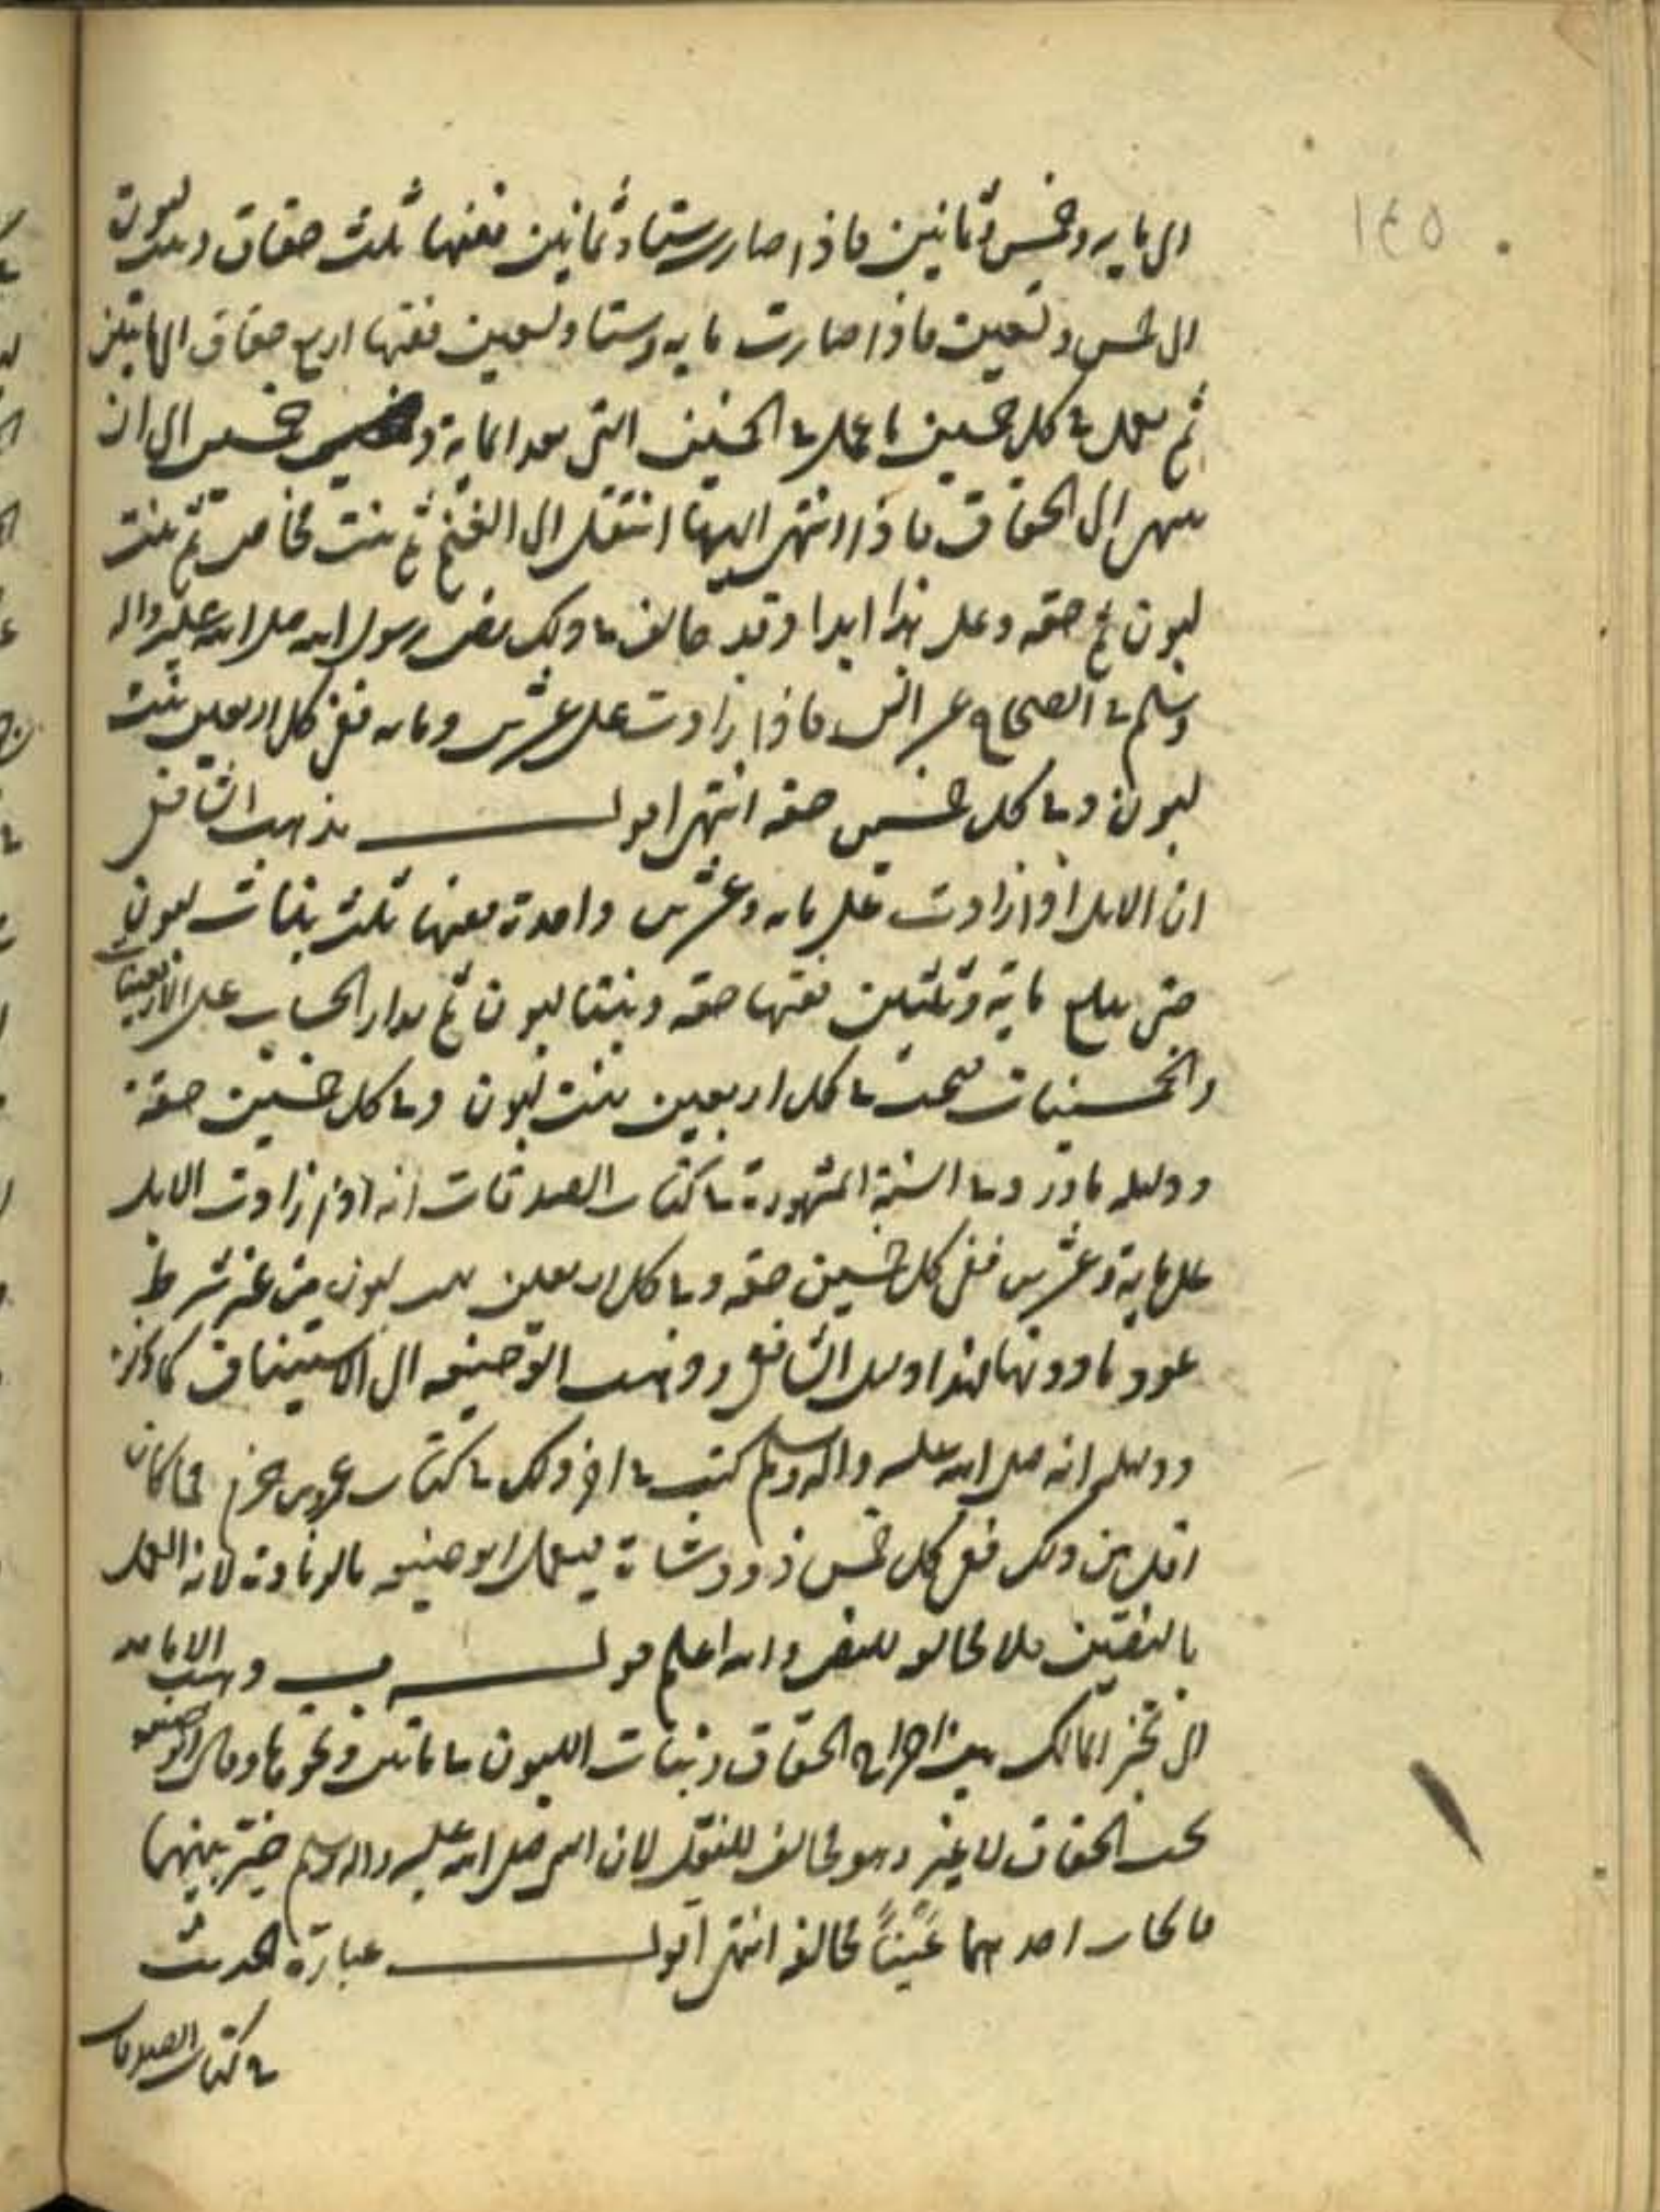 ١٤٥
الى مايه وخمس وثمانين فاذا صارت ستا وثمانين ففيها ثلث حقاق وبنت لبون
الى خمس وتسعين فاذا صارت مايه وستا وتسعين ففيها اربع حقاق الى مايتين
ثم يعمل في كل خمسين ما عمل في الخمسين التي بعد المايه و خمسين الى ان
ينتهي الى الحقاق فاذا انتهى اليها انتقل الى الغنم ثم بنت مخاض ثم بنت
لبون ثم حقه وعلى هذا ابدا وقد خالف في ذلك نص رسول الله صلى الله عليه واله
وسلم في الصحاح عن انس فاذا زادت على عشرين ومايه ففي كل اربعين بنت
لبون وفي كل خمسين حقه انتهى اقول مذهب الشافعي
ان الابل اذا زادت على مايه وعشرين واحدة ففيها ثلث بنات لبون
حتى يبلغ ماية وثلثين ففيها حقه وبنتا لبون ثم يدار الحساب على الاربعينات
والخمسينات فيجب في كل اربعين بنت لبون وفي كل خمسين حقة
ودليله ما ورد في النسخة المشهورة في كتاب الصدقات انه اذا زادت الابل
على ماية وعشرين ففي كل خمسين حقه وفي كل اربعين بنت لبون من غير شرط
عود ما دونها فهذا دليل الشافعي وذهب ابو حنيفه الى الاستيناف كما ذكر
ودليله انه صلى الله عليه واله وسلم كتب في اخر ذلك في كتاب عمرو بن حزم فما كان
اقل من ذلك ففي كل خمس ذود شاة فيعمل ابو حنيفه بالزيادة لانه العمل
بالنصين فلا مخالفه للنص والله اعلم قوله ف ذهب الاماميه
الى تخير المالك بين اخراج الحقاق وبنات اللبون في مايتين ونحوها وقال ابو حنيفه
يجب الحقاق لا غير وهو مخالف للنقل لان النبي صلى الله عليه واله وسلم خير بينهما
فايجاب احدهما عَيْناً مخالفه انتهى اقول عبارة الحديث
في كتاب الصدقات